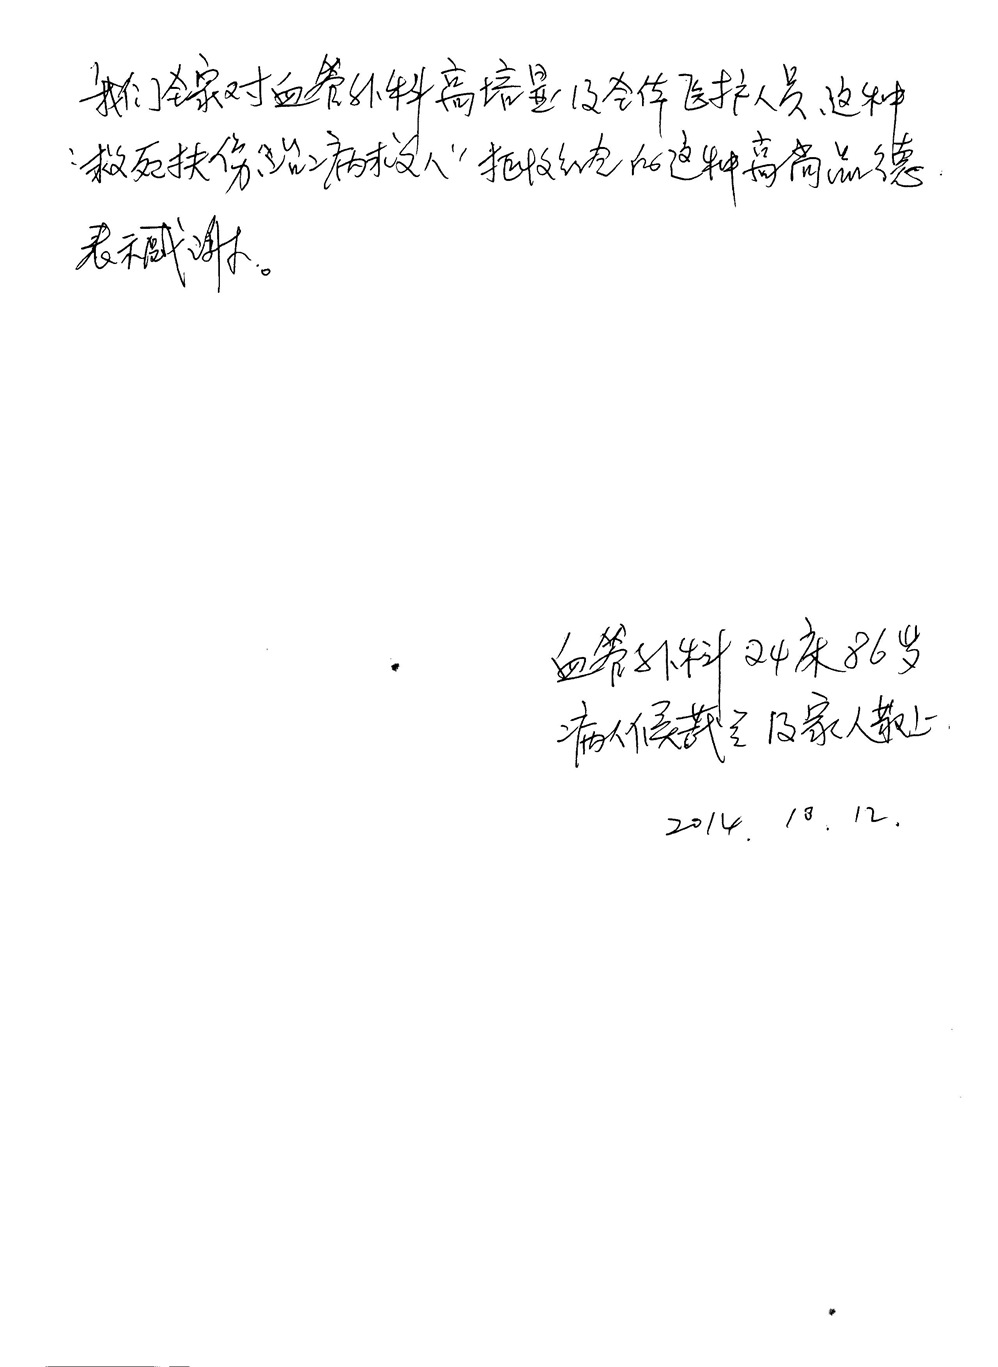 我们全家对血管外科高培显及全体医护人员、这种
“救死扶伤、治病救人”拒收红包的这种高尚品德
表示感谢。
血管外科24床86岁
病人侯 及家人敬上.
2014. 10. 12.